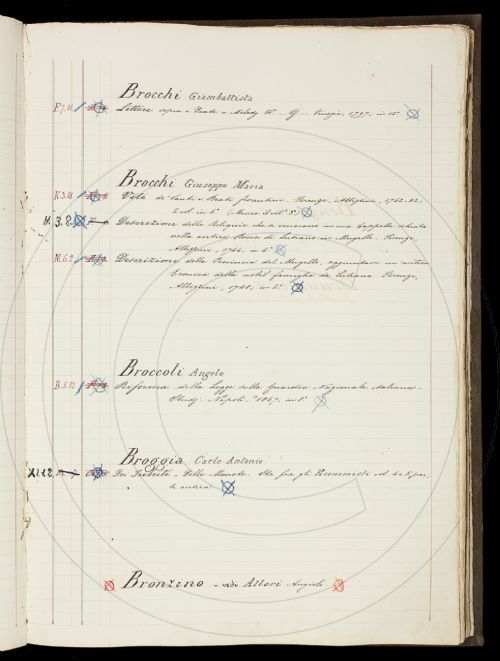 Brocchi Giambattista
F. 7. 11. Lettere sopra a Dante a Milady W.... Q.... Venezia, 1797; in 12°
Brocchi Giuseppe Maria
K. 3. 18 Vite di Santi e Beati fiorentini. Firenze, Albizzini, 1742.
2 vol. in
H. 3. 8. Descrizione delle Reliquie che si venerano in una Cappella situata
nella antica di Lutiano in Mugello. Firenze,
Albizzini, in
N. 6. 2 Descrizione della Provincia del Mugello, aggiuntavi un'antica
Cronica della nobil famiglia da Lutiano. Firenze,
Albizzini, 1748; in
Broccoli Angelo
R. 5. 12 Riforma della Legge sulla Guardia Nazionale Italiana.
Studj. Napoli. 1867. in 8°
Broggia Carlo Antonio
XI. 2 Dei Tributi - Delle Monete. Sta fra gli Economisti vol. 4 e 5 par-
te antica
Bronzino - vedi Allori Angiolo.